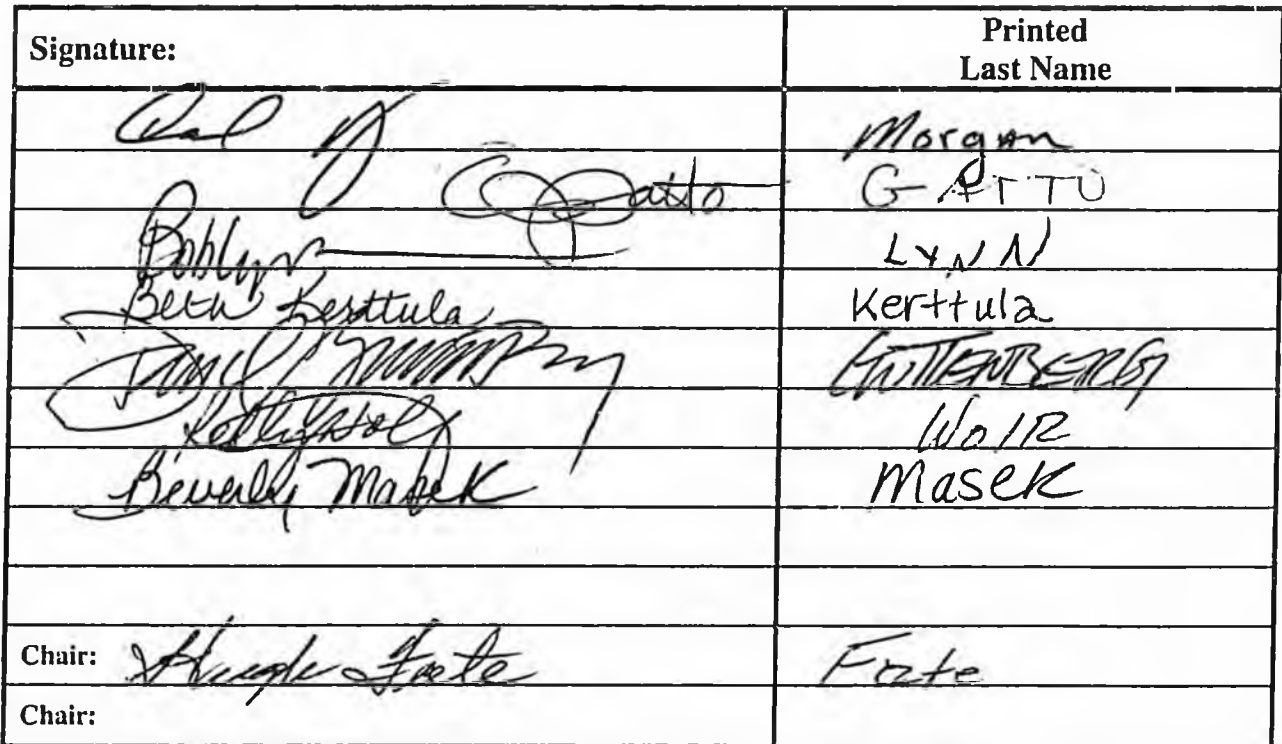 Signature: Printed
Last Name
Morgan
Gatto GATTO
Bob Lynn LYNN
Beth Kerttula Kerttula
GUTTENBERG
Kelly Wolf Wolf
Beverly Masek Masek
Chair: Hugh Fate Fate
Chair: